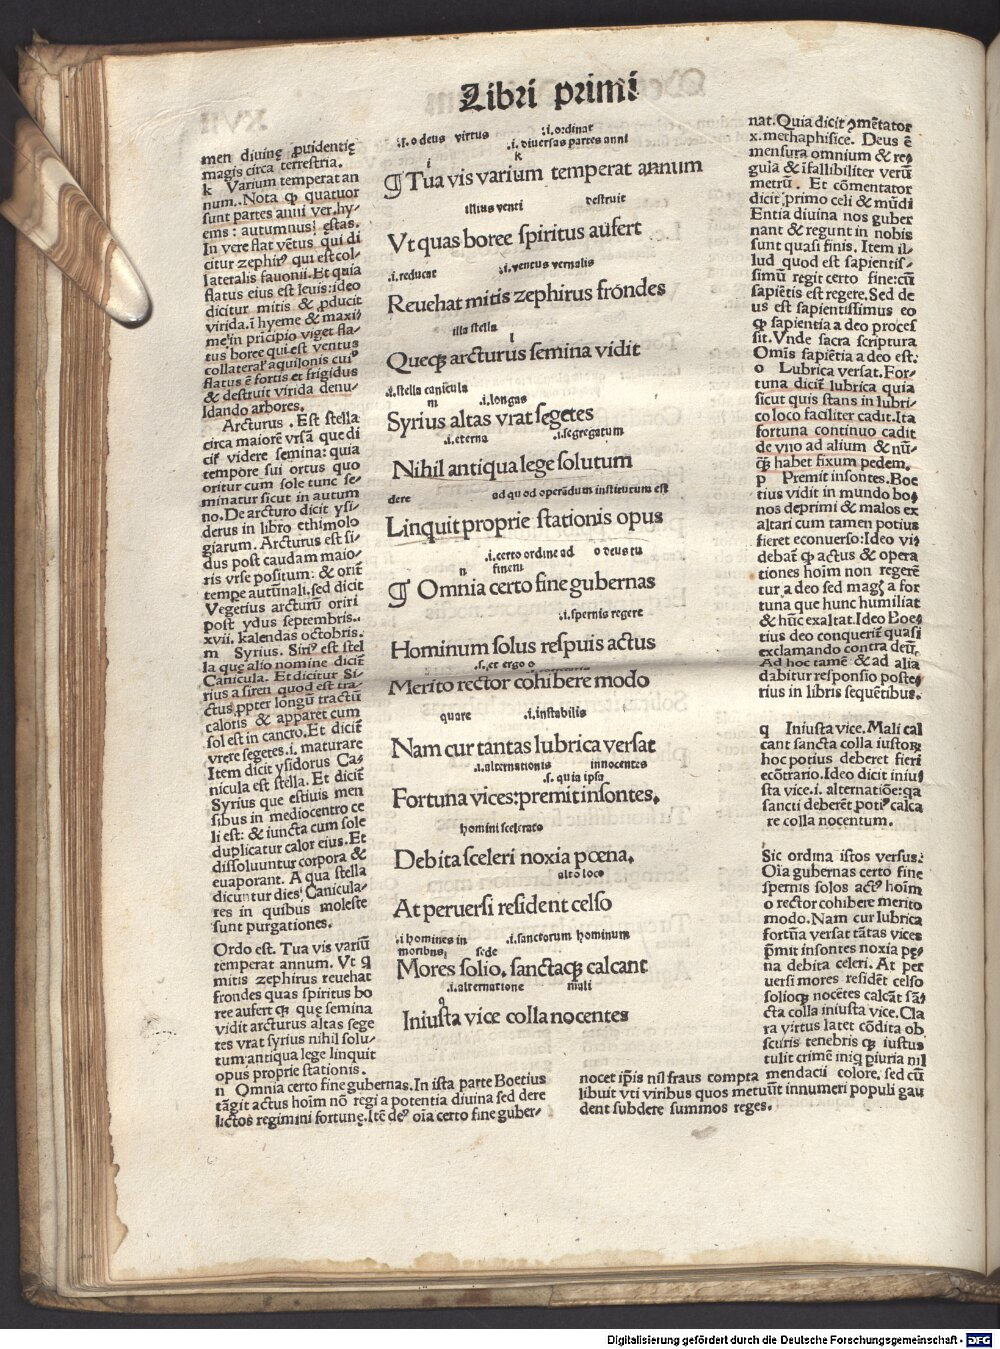 Libri primi
men diuinę ꝓuidentię
magis circa terrestria.
k Varium temperat an
num. Nota ꝙ quatuor
sunt partes anni ver. hy-
ems : autumnus: ęstas.
In vere flat vẽtus qui di
citur zephirꝰ qui est col-
lateralis fauonii. Et quia
flatus eius est leuis: ideo
dicitur mitis & ꝓducit
virida. ĩ hyeme & maxi-
me in prĩcipio viget fla-
tus boree qui est ventus
collateralꝭ aquilonis cuiꝰ
flatus ẽ fortis et frigidus
& destruit virida denu-
ldando arbores.
Arcturus . Est stella
circa maiorẽ vrsã que di
citꝭ videre semina: quia
tempore sui ortus quo
oritur cum sole tunc se-
minatur sicut in autum
no. De arcturo dicit ysi-
derus in libro ethimolo
giarum. Arcturus est si-
dus post caudam maio-
ris vrse positum: & orit̃
tempe autũnali. sed dicit
Vegetius arcturũ oriri
post ydus septembris..
xvii. kalendas octobris.
m Syrius. Siriꝰ est stel
la que alio nomine dicit̃
Canicula. Et dicitur Si-
rius a siren quod est tra-
ctus ꝓpter longũ tractũ
caloris & apparet cum
sol est in cancro. Et dicit̃
vrere segetes .i. maturare
Item dicit ysidorus Ca-
nicula est stella. Et dicit̃
Syrius que estiuis men
sibus in mediocentro ce
li est: & iuncta cum sole
duplicatur calor eius. Et
dissoluuntur corpora &
euaporant. A qua stella
dicuntur dies Canicula-
res in quibus moleste
sunt purgationes.
Ordo est. Tua vis variũ
temperat annum. Vt ꝗ
mitis zephirus reuehat
frondes quas spiritus bo
ree aufert ꝗ que semina
vidit arcturus altas sege
tes vrat syrius nihil solu-
tum antiqua lege linquit
opus proprie stationis.
n Omnia certo fine gubernas. In ista parte Boetius
tãgit actus hoĩm nõ regi a potentia diuina sed dere
lictos regimini fortunę. Itẽ deꝰ oĩa certo fine guber-
.s. o deus virtus .i. ordinat
.i. diuersas partes anni
i k
¶ Tua vis varium temperat annum
illius venti destruit
Vt quas boree spiritus aufert
.i. reducat .i. ventus vernalis
Reuehat mitis zephirus frõndes
illa stella l
Queqꝫ arcturus semina vidit
.i. stella canicula
m .i. longas
Syrius altas vrat segetes
.i. eterna .i. segregatum
Nihil antiqua lege solutum
dere ad quod operãdum institutum est
Linquit proprie stationis opus
.i. certo ordine ad o deus tu
n finem
¶ Omnia certo fine gubernas
.i. spernis regere
Hominum solus respuis actus
.s. et ergo o
Merito rector cohibere modo
quare .i. instabilis
Nam cur tantas lubrica versat
.i. alternationis innocentes
.s. quia ipsa
Fortuna vices: premit insontes.
homini scelerato
Debita sceleri noxia pœna.
alto loco
At peruersi resident celso
.i homines in .i. sanctorum hominum
moribus: sede
Mores solio. sanctaqꝫ calcant
.i. alternatione mali
q
Iniusta vice colla nocentes
nat. Quia dicit ꝯmẽtator
x. methaphisice. Deus ẽ
mensura omnium & re-
gula & ĩfallibiliter verũ
metrũ. Et cõmentator
dicit primo celi & mũdi
Entia diuina nos guber
nant & regunt in nobis
sunt quasi finis. Item il-
lud quod est sapientis-
simũ regit certo fine: cũ
sapiẽtis est regere. Sed de
us est sapientissimus eo
ꝙ sapientia a deo proces
sit. Vnde sacra scriptura
Omĩs sapiẽtia a deo est.
o Lubrica versat. For-
tuna dicit̃ lubrica quia
sicut quis stans in lubri-
co loco faciliter cadit. Ita
fortuna continuo cadit
de vno ad alium & nũ-
qꝫ habet fixum pedem.
p Premit insontes. Boe
tius vidit in mundo bo-
nos deprimi & malos ex
altari cum tamen potius
fieret econuerso: Ideo vi-
debat̃ ꝙ actus & opera
tiones hoĩm non regerẽ
tur a deo sed magꝭ a for
tuna que hunc humiliat
& hũc exaltat. Ideo Boe-
tius deo conquerit̃ quasi
exclamando contra deũ.
Ad hoc tamẽ & ad alia
dabitur responsio poste-
rius in libris sequẽtibus.
q Iniusta vice. Mali cal
cant sancta colla iustoꝝ
hoc potius deberet fieri
ecõtrario. Ideo dicit iniu-
sta vice .i. alternatiõe: qa
sancti deberẽt potiꝰ calca
re colla nocentum.
Sic ordina istos versus.
Oĩa gubernas certo fine
spernis solos actꝰ hoĩm
o rector cohibere merito
modo. Nam cur lubrica
fortũa versat tãtas vices
p̃mit insontes noxia pę-
na debita celeri. At per
uersi mores residẽt celso
solioqꝫ nocẽtes calcãt sã-
cta colla iniusta vice. Cla
ra virtus latet cõdita ob
scuris tenebris ꝗ iustus
tulit crimẽ iniq̃ piuria nil
nocet ip̃is nil fraus compta mendacii colore. sed cũ
libuit vti viribus quos metuũt innumeri populi gau
dent subdere summos reges.
Digitalisierung gefördert durch die Deutsche Forschungsgemeinschaft - DFG